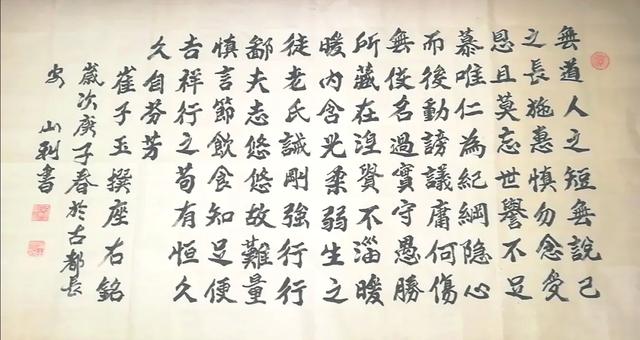 無道人之短無說己
之長施惠慎勿念受
恩且莫忘世譽不足
慕唯仁為紀綱隐心
而後動謗議庸何傷
無伎名過實守愚勝
所藏在涅貴不淄暖
暖内含光柔弱生之
徒老氏誡剛強行行
鄙夫志悠悠故難量
慎言節飲食知足便
吉祥行之苟有恒久
久自芬芳
崔子玉撰座右銘
歲次庚子春於古都長
安 山利書